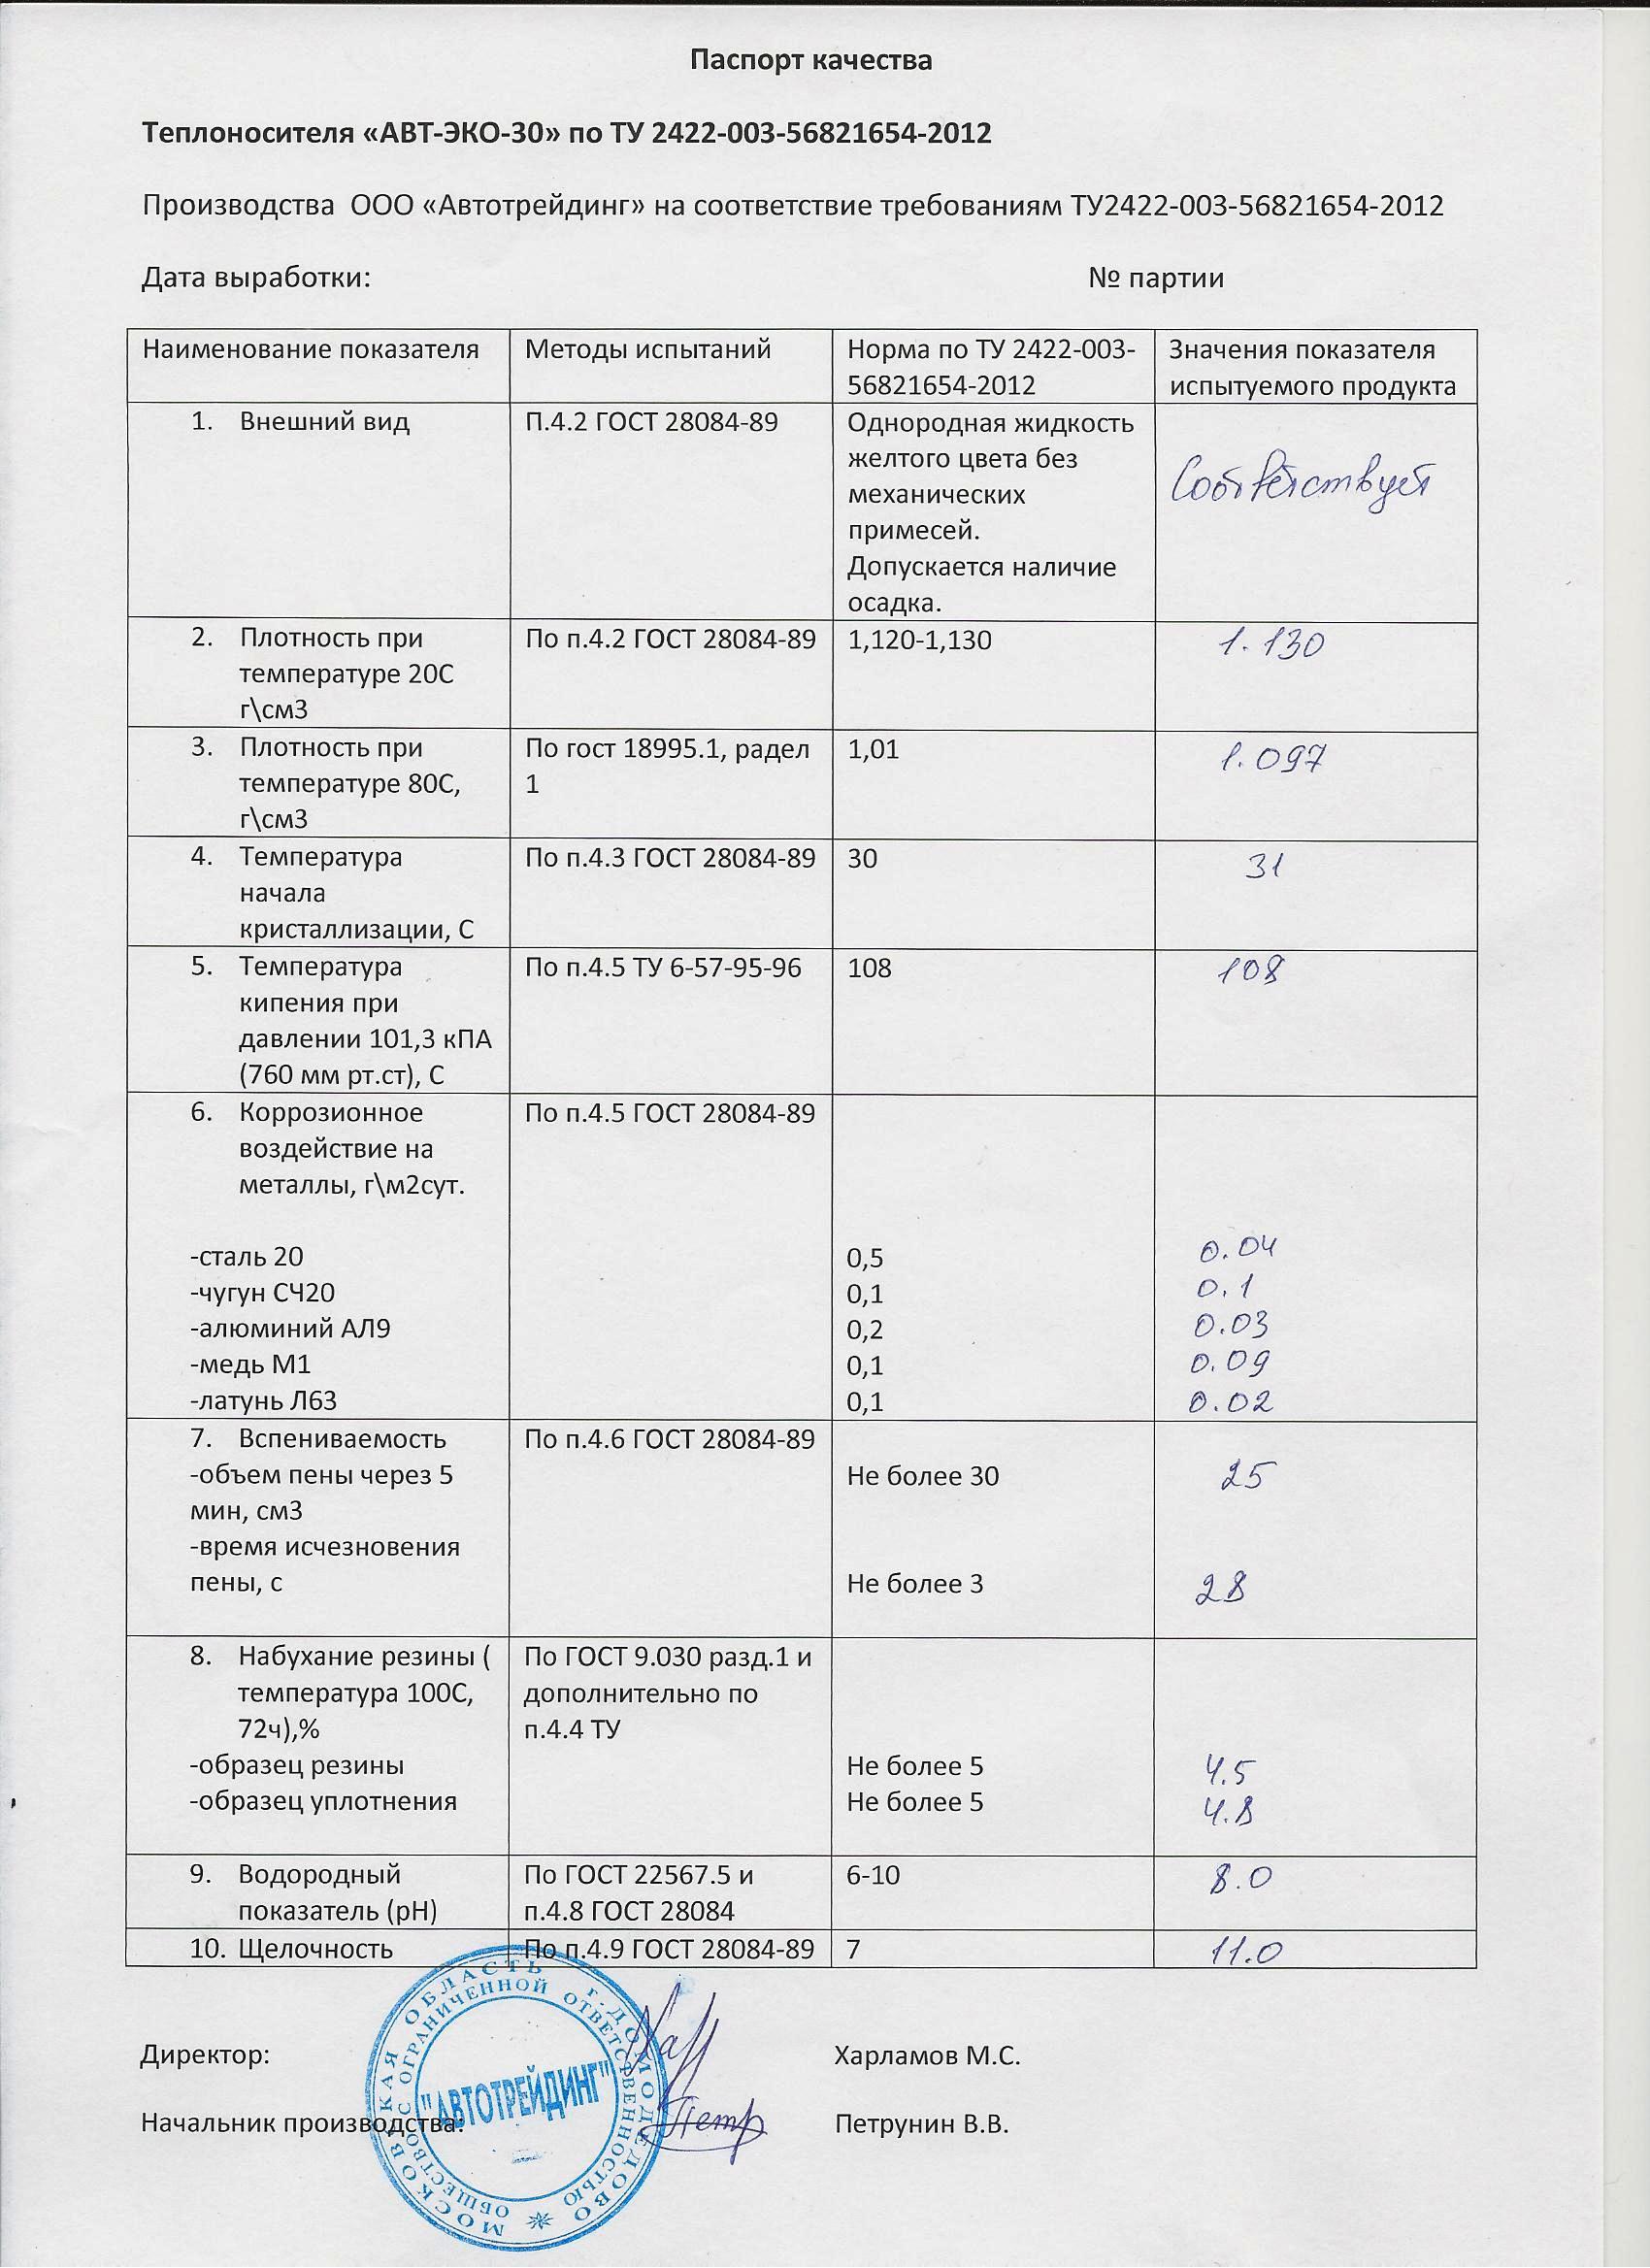 Паспорт качества
Теплоносителя «АВТ-ЭКО-30» по ТУ 2422-003-56821654-2012
Производства ООО «Автотрейдинг» на соответствие требованиям ТУ2422-003-56821654-2012
Дата выработки: № партии
Наименование показателя
Методы испытаний
Норма по ТУ 2422-003-
56821654-2012
Значения показателя
испытуемого продукта
1. Внешний вид
П.4.2 ГОСТ 28084-89
Однородная жидкость
желтого цвета без
механических
примесей.
Допускается наличие
осадка.
Соответствует
2. Плотность при
температуре 20С
г\см3
По п.4.2 ГОСТ 28084-89
1,120-1,130
1.130
3. Плотность при
температуре 80С,
г\см3
По гост 18995.1, радел
1
1,01
1.097
4. Температура
начала
кристаллизации, С
По п.4.3 ГОСТ 28084-89
30
31
5. Температура
кипения при
давлении 101,3 кПА
(760 мм рт.ст), С
По п.4.5 ТУ 6-57-95-96
108
108
6. Коррозионное
воздействие на
металлы, г\м2сут.
По п.4.5 ГОСТ 28084-89
-сталь 20 0,5 0.04
-чугун СЧ20 0,1 0.1
-алюминий АЛ9 0,2 0.03
-медь М1 0,1 0.09
-латунь Л63 0,1 0.02
7. Вспениваемость
По п.4.6 ГОСТ 28084-89
-объем пены через 5
мин, см3
Не более 30
25
-время исчезновения
пены, с
Не более 3
28
8. Набухание резины (
температура 100С,
72ч),%
По ГОСТ 9.030 разд.1 и
дополнительно по
п.4.4 ТУ
-образец резины Не более 5 4.5
-образец уплотнения Не более 5 4.8
9. Водородный
показатель (рН)
По ГОСТ 22567.5 и
п.4.8 ГОСТ 28084
6-10
8.0
10. Щелочность
По п.4.9 ГОСТ 28084-89
7
11.0
Директор: Харламов М.С.
Начальник производства: Петрунин В.В.
МОСКОВСКАЯ ОБЛАСТЬ г.ДОМОДЕДОВО
ОБЩЕСТВО С ОГРАНИЧЕННОЙ ОТВЕТСТВЕННОСТЬЮ
"АВТОТРЕЙДИНГ"